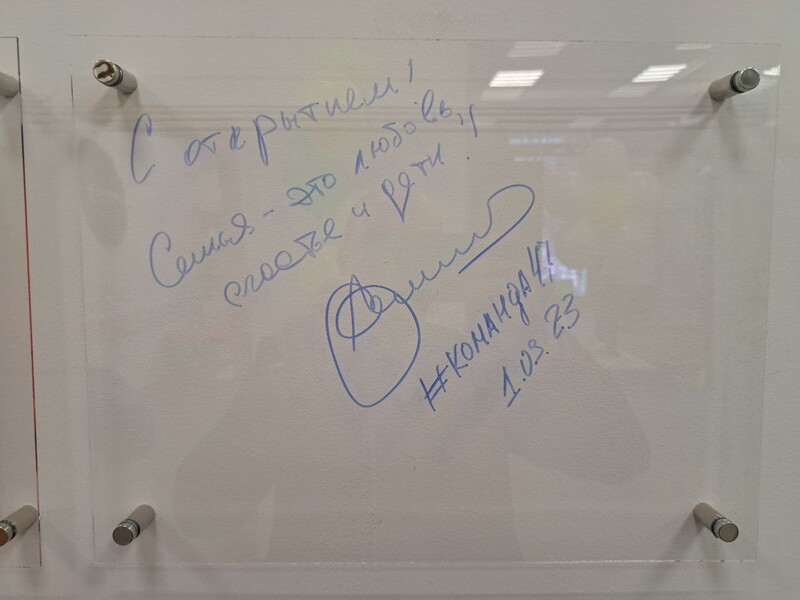 С открытием!
Семья - это любовь,
счастье и дети!
#КОМАНДА47
1.03.23